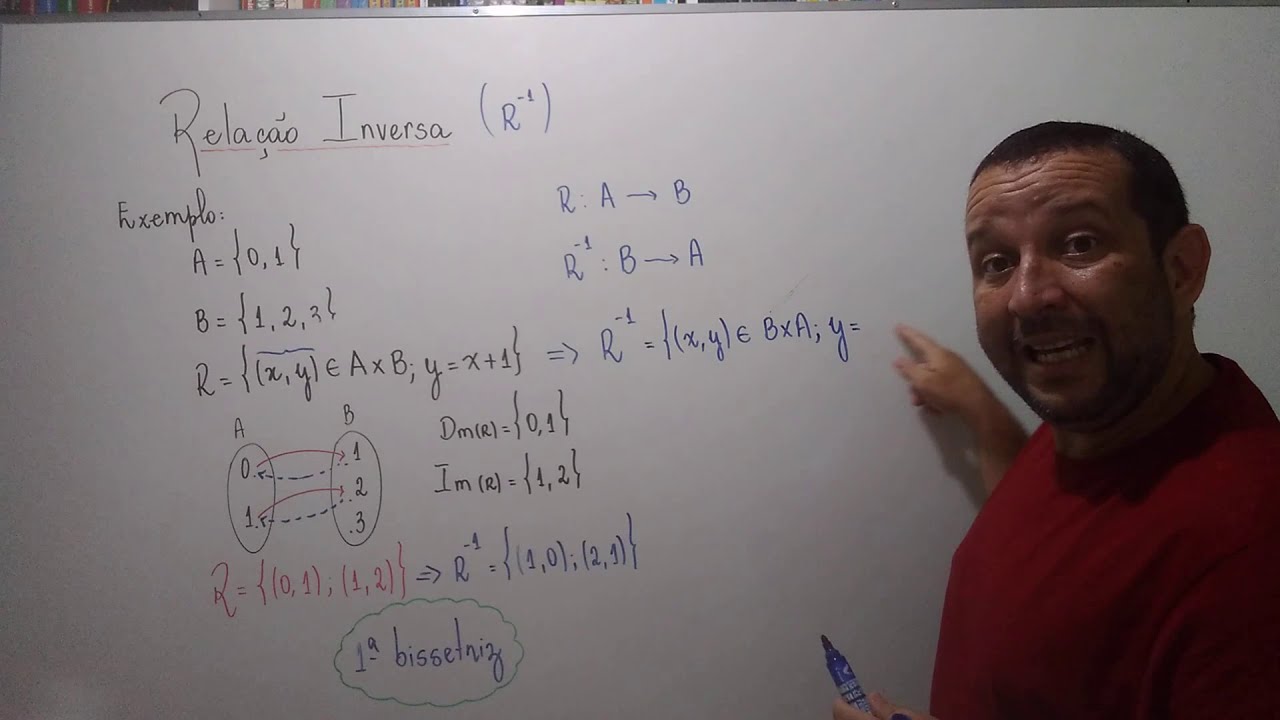 Relação Inversa (R⁻¹)
Exemplo:
A = {0, 1}
B = {1, 2, 3}
R = {(x, y) ∈ A x B; y = x + 1} ⇒ R⁻¹ = {(x, y) ∈ B x A; y =
R : A → B
R⁻¹ : B → A
A B
0. .1
1. .2
.3
Dm(R) = {0, 1}
Im(R) = {1, 2}
R = {(0, 1) ; (1, 2)} ⇒ R⁻¹ = {(1, 0) ; (2, 1)}
1ª bissetriz